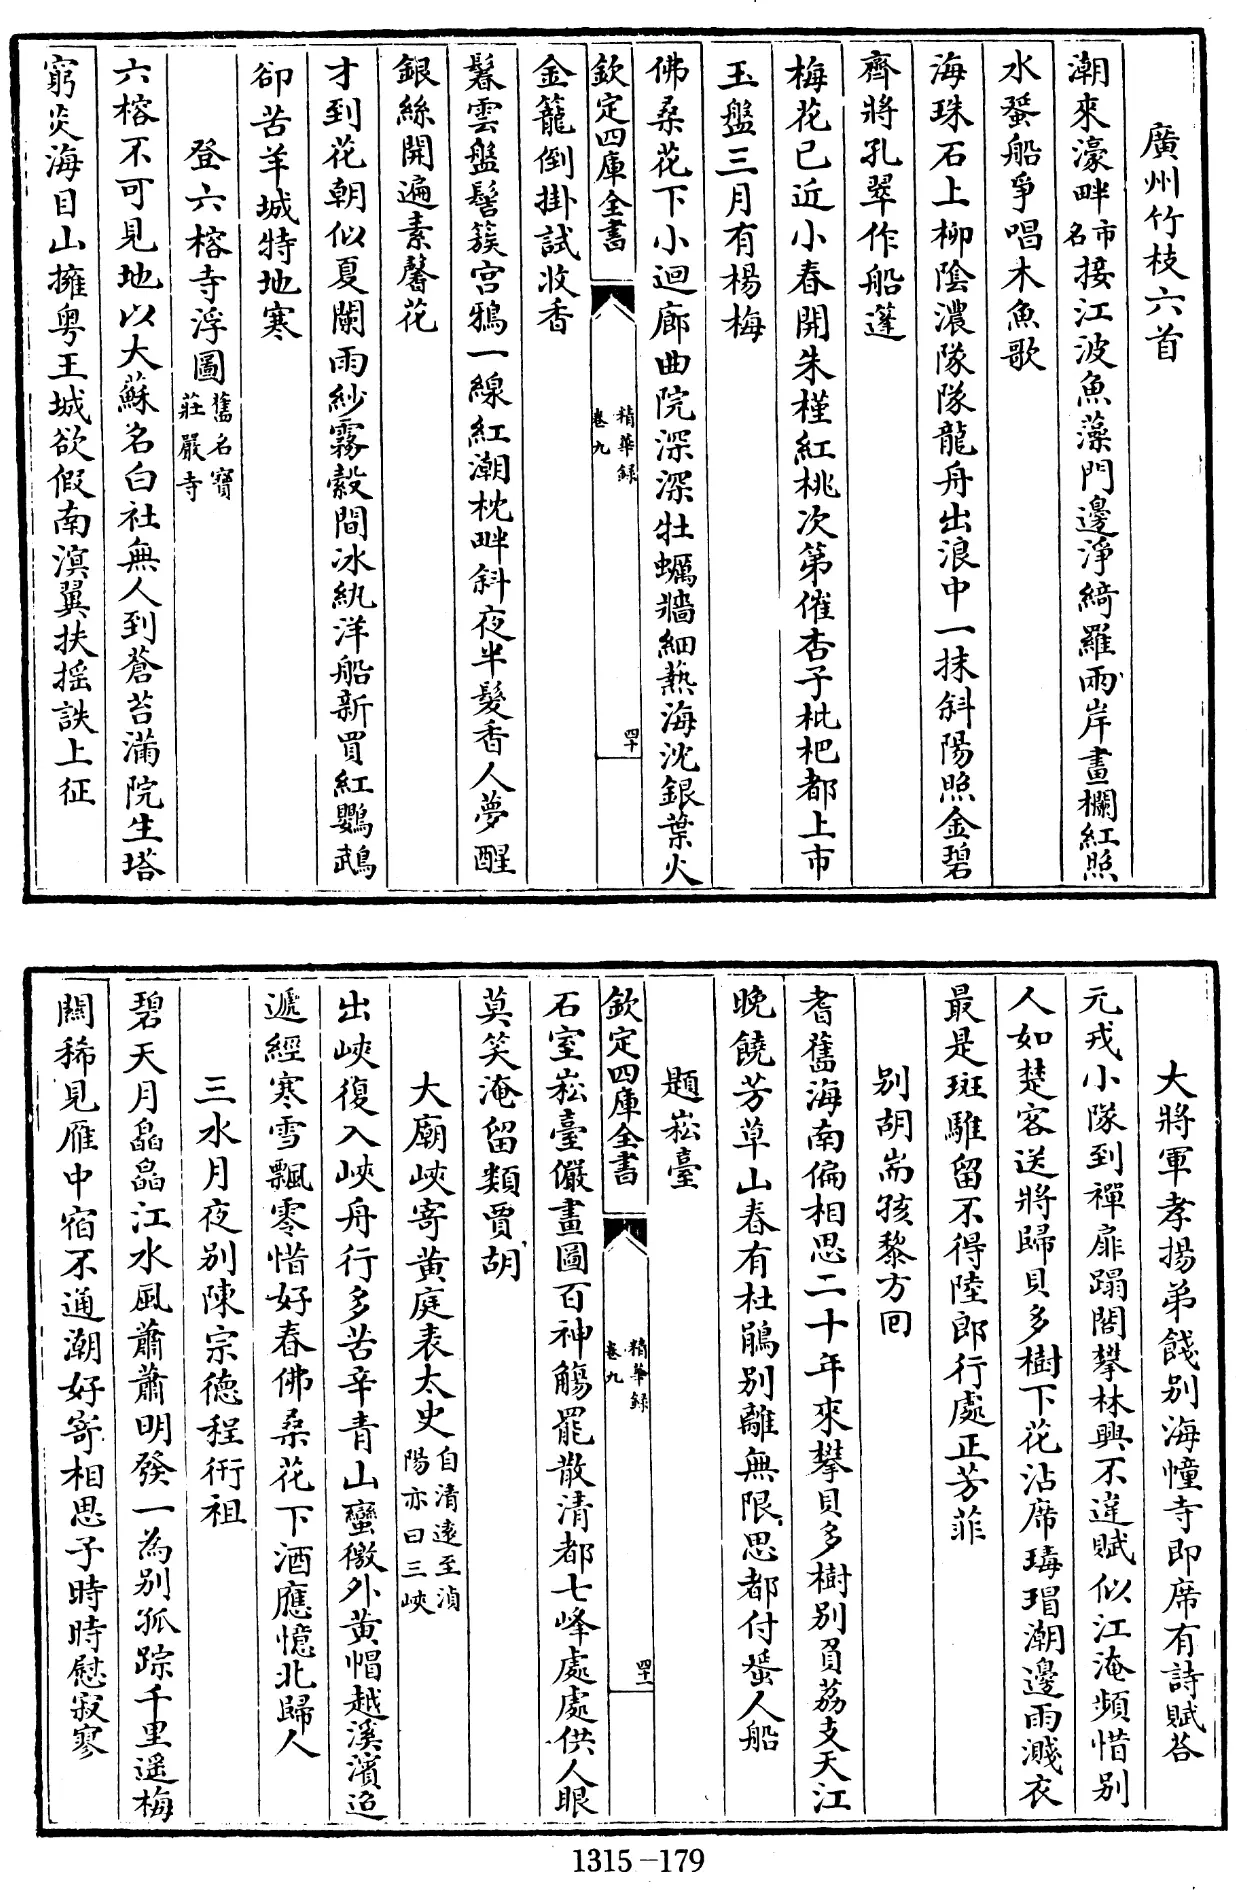 廣州竹枝六首
潮來濠畔市名接江波魚藻門邊淨綺羅兩岸畫欄紅照
水蜑船爭唱木魚歌
海珠石上柳陰濃隊隊龍舟出浪中一抹斜陽照金碧
齊將孔翠作船篷
梅花已近小春開朱槿紅桃次第催杏子枇杷都上市
玉盤三月有楊梅
佛桑花下小迴廊曲院深深牡蠣牆細爇海沈銀葉火
欽定四庫全書
精華録
卷九
四十
金籠倒掛試收香
鬈雲盤髻簇宮鴉一線紅潮枕畔斜夜半髮香人夢醒
銀絲開遍素馨花
才到花朝似夏闌雨紗霧縠間冰紈洋船新買紅鸚鵡
卻苦羊城特地寒
登六榕寺浮圖舊名寶莊嚴寺
六榕不可見地以大蘇名白社無人到蒼苔滿院生塔
窮炎海目山擁粵王城欲假南溟翼扶搖詄上征
大將軍孝揚弟餞別海幢寺即席有詩賦荅
元戎小隊到禪扉蹋閣攀林興不違賦似江淹頻惜別
人如楚客送將歸貝多樹下花沾席瑇瑁潮邊雨濺衣
最是斑騅留不得陸郎行處正芳菲
別胡耑孩黎方回
耆舊海南偏相思二十年來攀貝多樹別負荔支天江
晚饒芳草山春有杜鵑別離無限思都付蜑人船
題崧臺
欽定四庫全書
精華録
卷九
四十一
石室崧臺儼畫圖百神觴罷散清都七峰處處供人眼
莫笑淹留類賈胡
大廟峽寄黃庭表太史自清遠至湞陽亦曰三峽
出峽復入峽舟行多苦辛青山蠻徼外黃帽越溪濱迢
遞經寒雪飄零惜好春佛桑花下酒應憶北歸人
三水月夜別陳宗德程衎祖
碧天月皛皛江水風蕭蕭明發一為別孤踪千里遥梅
關稀見雁中宿不通潮好寄相思子時時慰寂寥
1315-179